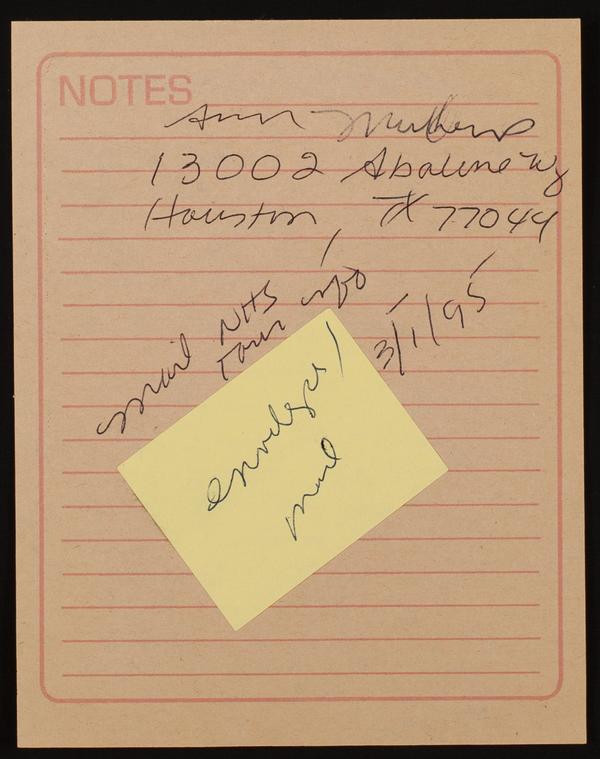 NOTES
Ann
13002 Abalene Wy
Houston, TX 77044
mail NHS
Tour info
3/1/95
envelope/
mail